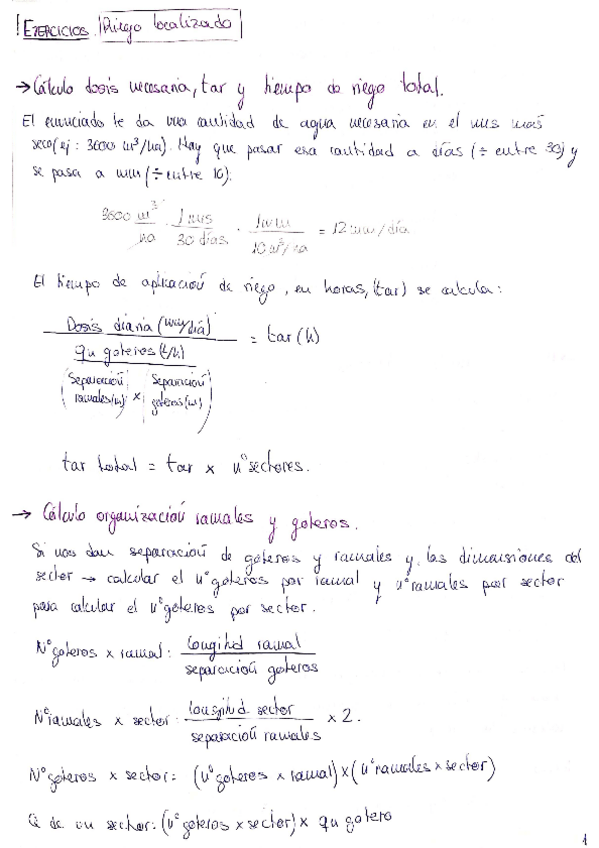 EJERCICIOS. Riego localizado
→ Cálculo dosis necesaria, tar y tiempo de riego total.
El enunciado te da una cantidad de agua necesaria en el mes más
seco (ej: 3600 m³/ha). Hay que pasar esa cantidad a días (÷ entre 30) y
se pasa a mm (÷ entre 10):
3600 m³/ha · 1 mes/30 días · 1mm/10 m³/ha = 12 mm/día
El tiempo de aplicación de riego, en horas, (tar) se calcula:
Dosis diaria (mm/día)
= tar (h)
qu goteros (l/h)
(Separación ramales(m)) x (Separación goteros(m))
tar total = tar x nº sectores.
→ Cálculo organización ramales y goteros.
Si nos dan separación de goteros y ramales y las dimensiones del
sector → calcular el nº goteros por ramal y nº ramales por sector
para calcular el nº goteros por sector.
Nº goteros x ramal: longitud ramal / separación goteros
Nº ramales x sector: longitud sector / separación ramales x 2.
Nº goteros x sector: (nº goteros x ramal) x (nº ramales x sector)
Q de un sector: (nº goteros x sector) x qu gotero
1